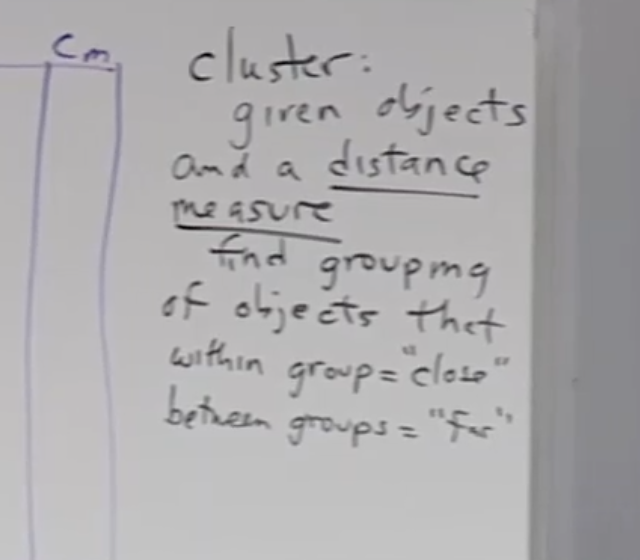 Cm
cluster:
given objects
and a distance
measure
find grouping
of objects that
within group = "close"
between groups = "far"